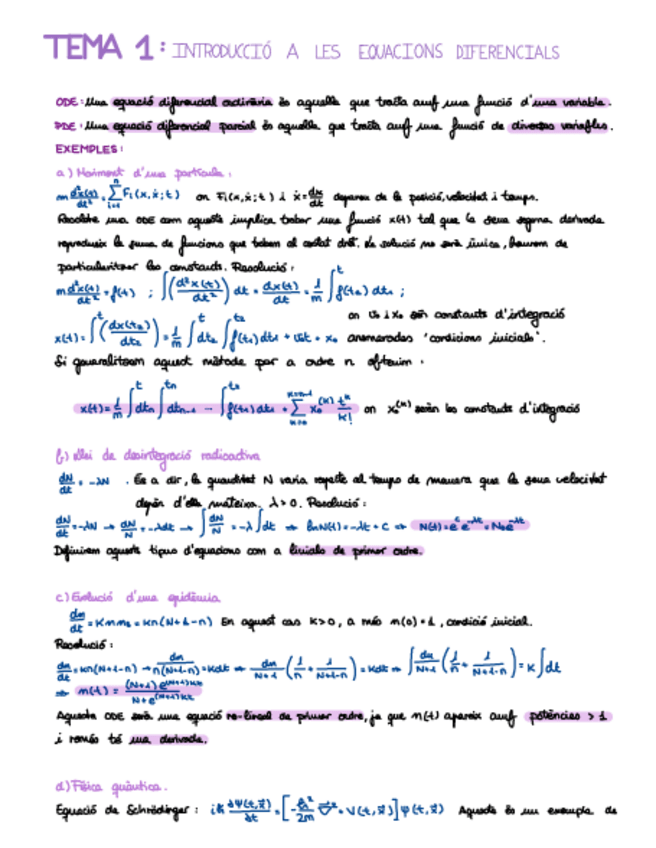 TEMA 1: INTRODUCCIÓ A LES EQUACIONS DIFERENCIALS
ODE: Una equació diferencial ordinària és aquella que tracta amb una funció d'una variable.
PDE: Una equació diferencial parcial és aquella que tracta amb una funció de diverses variables.
EXEMPLES:
a) Moviment d'una partícula:
m d²x(t)/dt² = Σ_{i=1}^{n} Fi(x,ẋ;t) on Fi(x,ẋ;t) i ẋ = dx/dt depenen de la posició, velocitat i temps.
Resoldre una ODE com aquesta implica trobar una funció x(t) tal que la seva segona derivada
reprodueix la suma de funcions que tobem al costat dret. La solució no serà única, haurem de
particularitzar les constants. Resolució:
m d²x(t)/dt² = f(t) ; ∫^t (d²x(t)/dt²) dt = dx(t)/dt = 1/m ∫^t f(t₁) dt₁ ;
x(t) = ∫^t (dx(t₂)/dt₂) = 1/m ∫^t dt₂ ∫^{t₂} f(t₁) dt₁ + v₀t + x₀ on v₀ i x₀ són constants d'integració
anomenades 'condicions inicials'.
Si generalitzem aquest mètode per a ordre n obtenim:
x(t) = 1/m ∫^t dtn ∫^{tn} dtn-1 ... ∫^{t₂} f(t₁) dt₁ + Σ_{k=0}^{k=n-1} x₀^(k) t^k/k! on x₀^(k) seran les constants d'integració
b) Llei de desintegració radioactiva
dN/dt = -λN. És a dir, la quantitat N varia respecte al temps de manera que la seva velocitat
depèn d'ella mateixa. λ>0. Resolució:
dN/dt = -λN → dN/N = -λdt → ∫ dN/N = -λ∫dt → ln N(t) = -λt + C → N(t) = e^c e^{-λt} = N₀e^{-λt}
Definirem aquests tipus d'equacions com a lineals de primer ordre.
c) Evolució d'una epidèmia
dn/dt = K n nₛ = Kn(N+1-n) En aquest cas K>0, a més n(0)=1, condició inicial.
Resolució:
dn/dt = Kn(N+1-n) → dn/n(N+1-n) = Kdt → dn/N+1 (1/n + 1/N+1-n) = Kdt → ∫ dn/N+1 (1/n + 1/N+1-n) = K∫dt
→ n(t) = (N+1) e^{(N+1)Kt} / N+e^{(N+1)Kt}
Aquesta ODE serà una equació no-lineal de primer ordre, ja que n(t) apareix amb potències > 1
i només té una derivada.
d) Física quàntica.
Equació de Schrödinger: iħ ∂Ψ(t,x⃗)/∂t = [-ħ²/2m ∇² + V(t,x⃗)] Ψ(t,x⃗) Aquesta és un exemple de